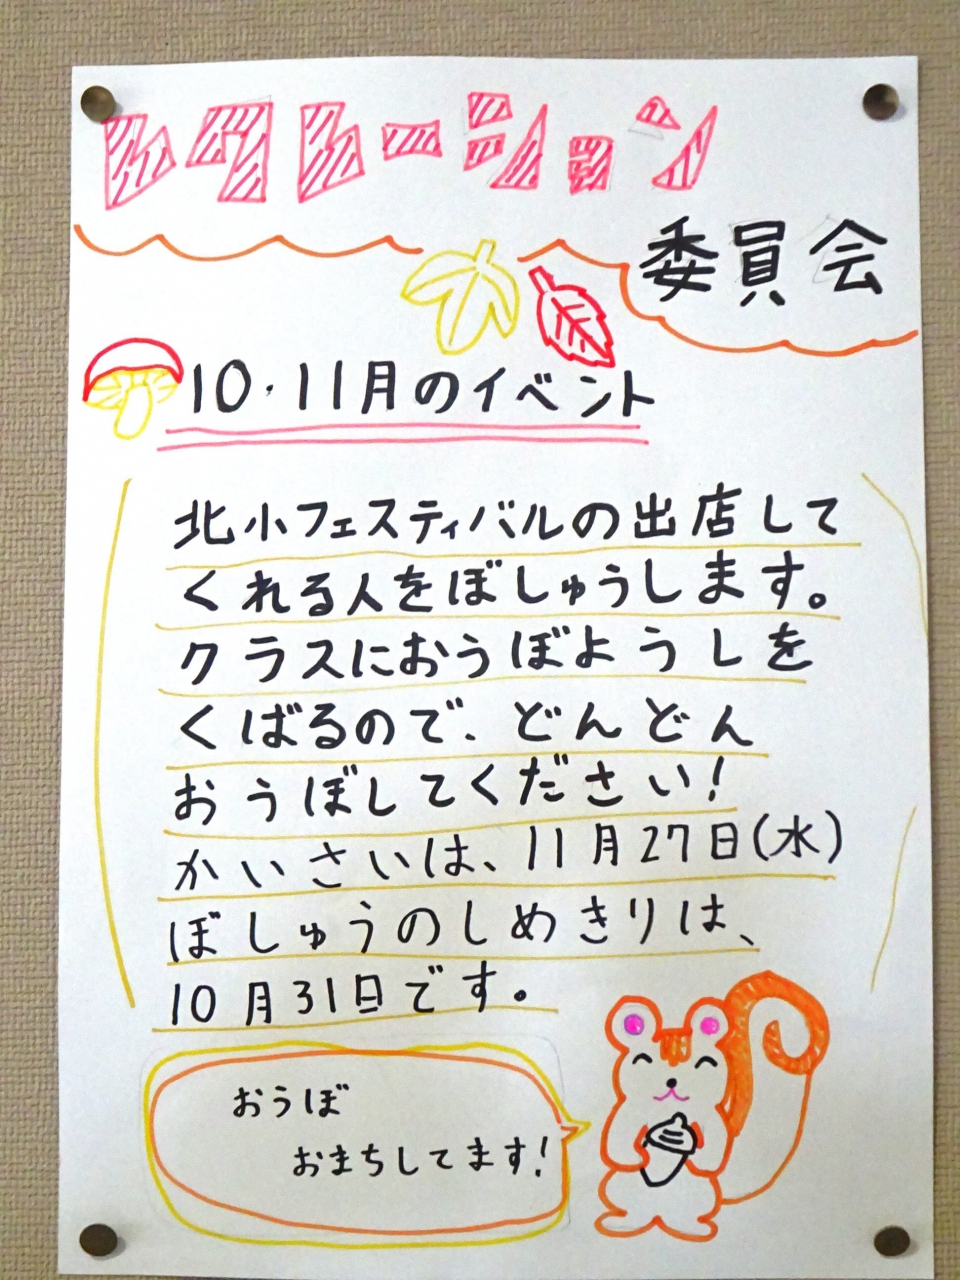 レクレーション
委員会
10・11月のイベント
北小フェスティバルの出店して
くれる人をぼしゅうします。
クラスにおうぼようしを
くばるので、どんどん
おうぼしてください!
かいさいは、11月27日(水)
ぼしゅうのしめきりは、
10月31日です。
おうぼ
おまちしてます!